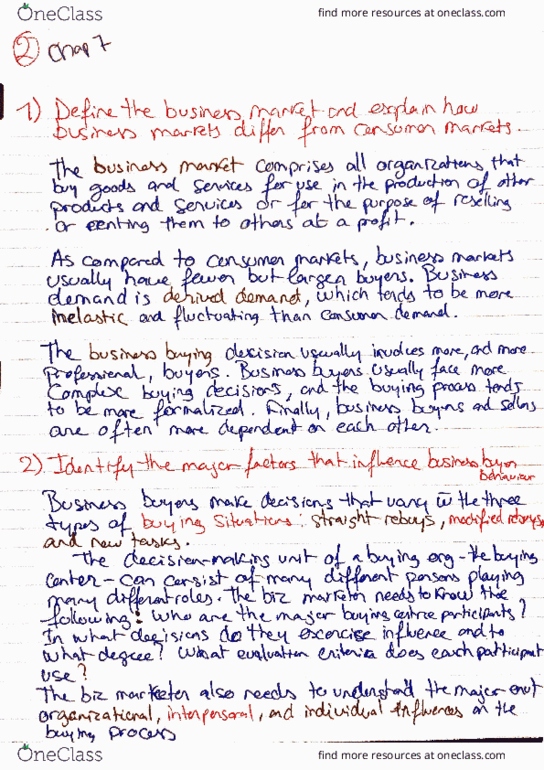 OneClass
find more resources at oneclass.com
2 Chap 7
1) Define the business market and explain how
business markets differ from consumer markets.
The business market comprises all organizations that
buy goods and services for use in the production of other
products and services or for the purpose of reselling
or renting them to others at a profit.
As compared to consumer markets, business markets
usually have fewer but larger buyers. Business
demand is derived demand, which tends to be more
inelastic and fluctuating than consumer demand.
The business buying decision usually involves more, and more
professional, buyers. Business buyers usually face more
complex buying decisions, and the buying process tends
to be more formalized. Finally, business buyers and sellers
are often more dependent on each other.
2) Identify the major factors that influence business buyer
behaviour
Business buyers make decisions that vary w the three
types of buying situations: straight rebuys, modified rebuys,
and new tasks.
The decision-making unit of a buying org - the buying
center - can consist of many different persons playing
many different roles. The biz marketer needs to know the
following: Who are the major buying centre participants?
In what decisions do they exercise influence and to
what degree? What evaluation criteria does each participant
use?
The biz marketer also needs to understand the major
organizational, interpersonal, and individual influences on the
buying process
OneClass
find more resources at oneclass.com